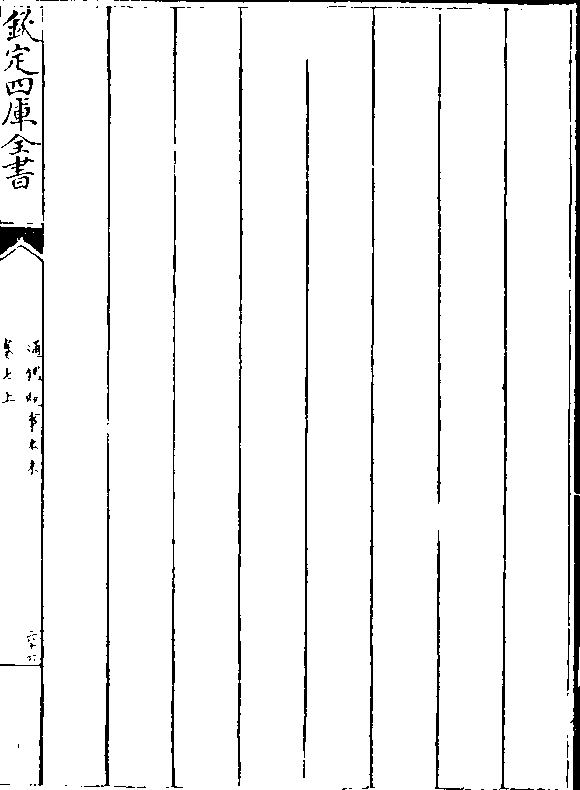 欽定四庫全書
通鑑紀事本末
卷七上
六十六